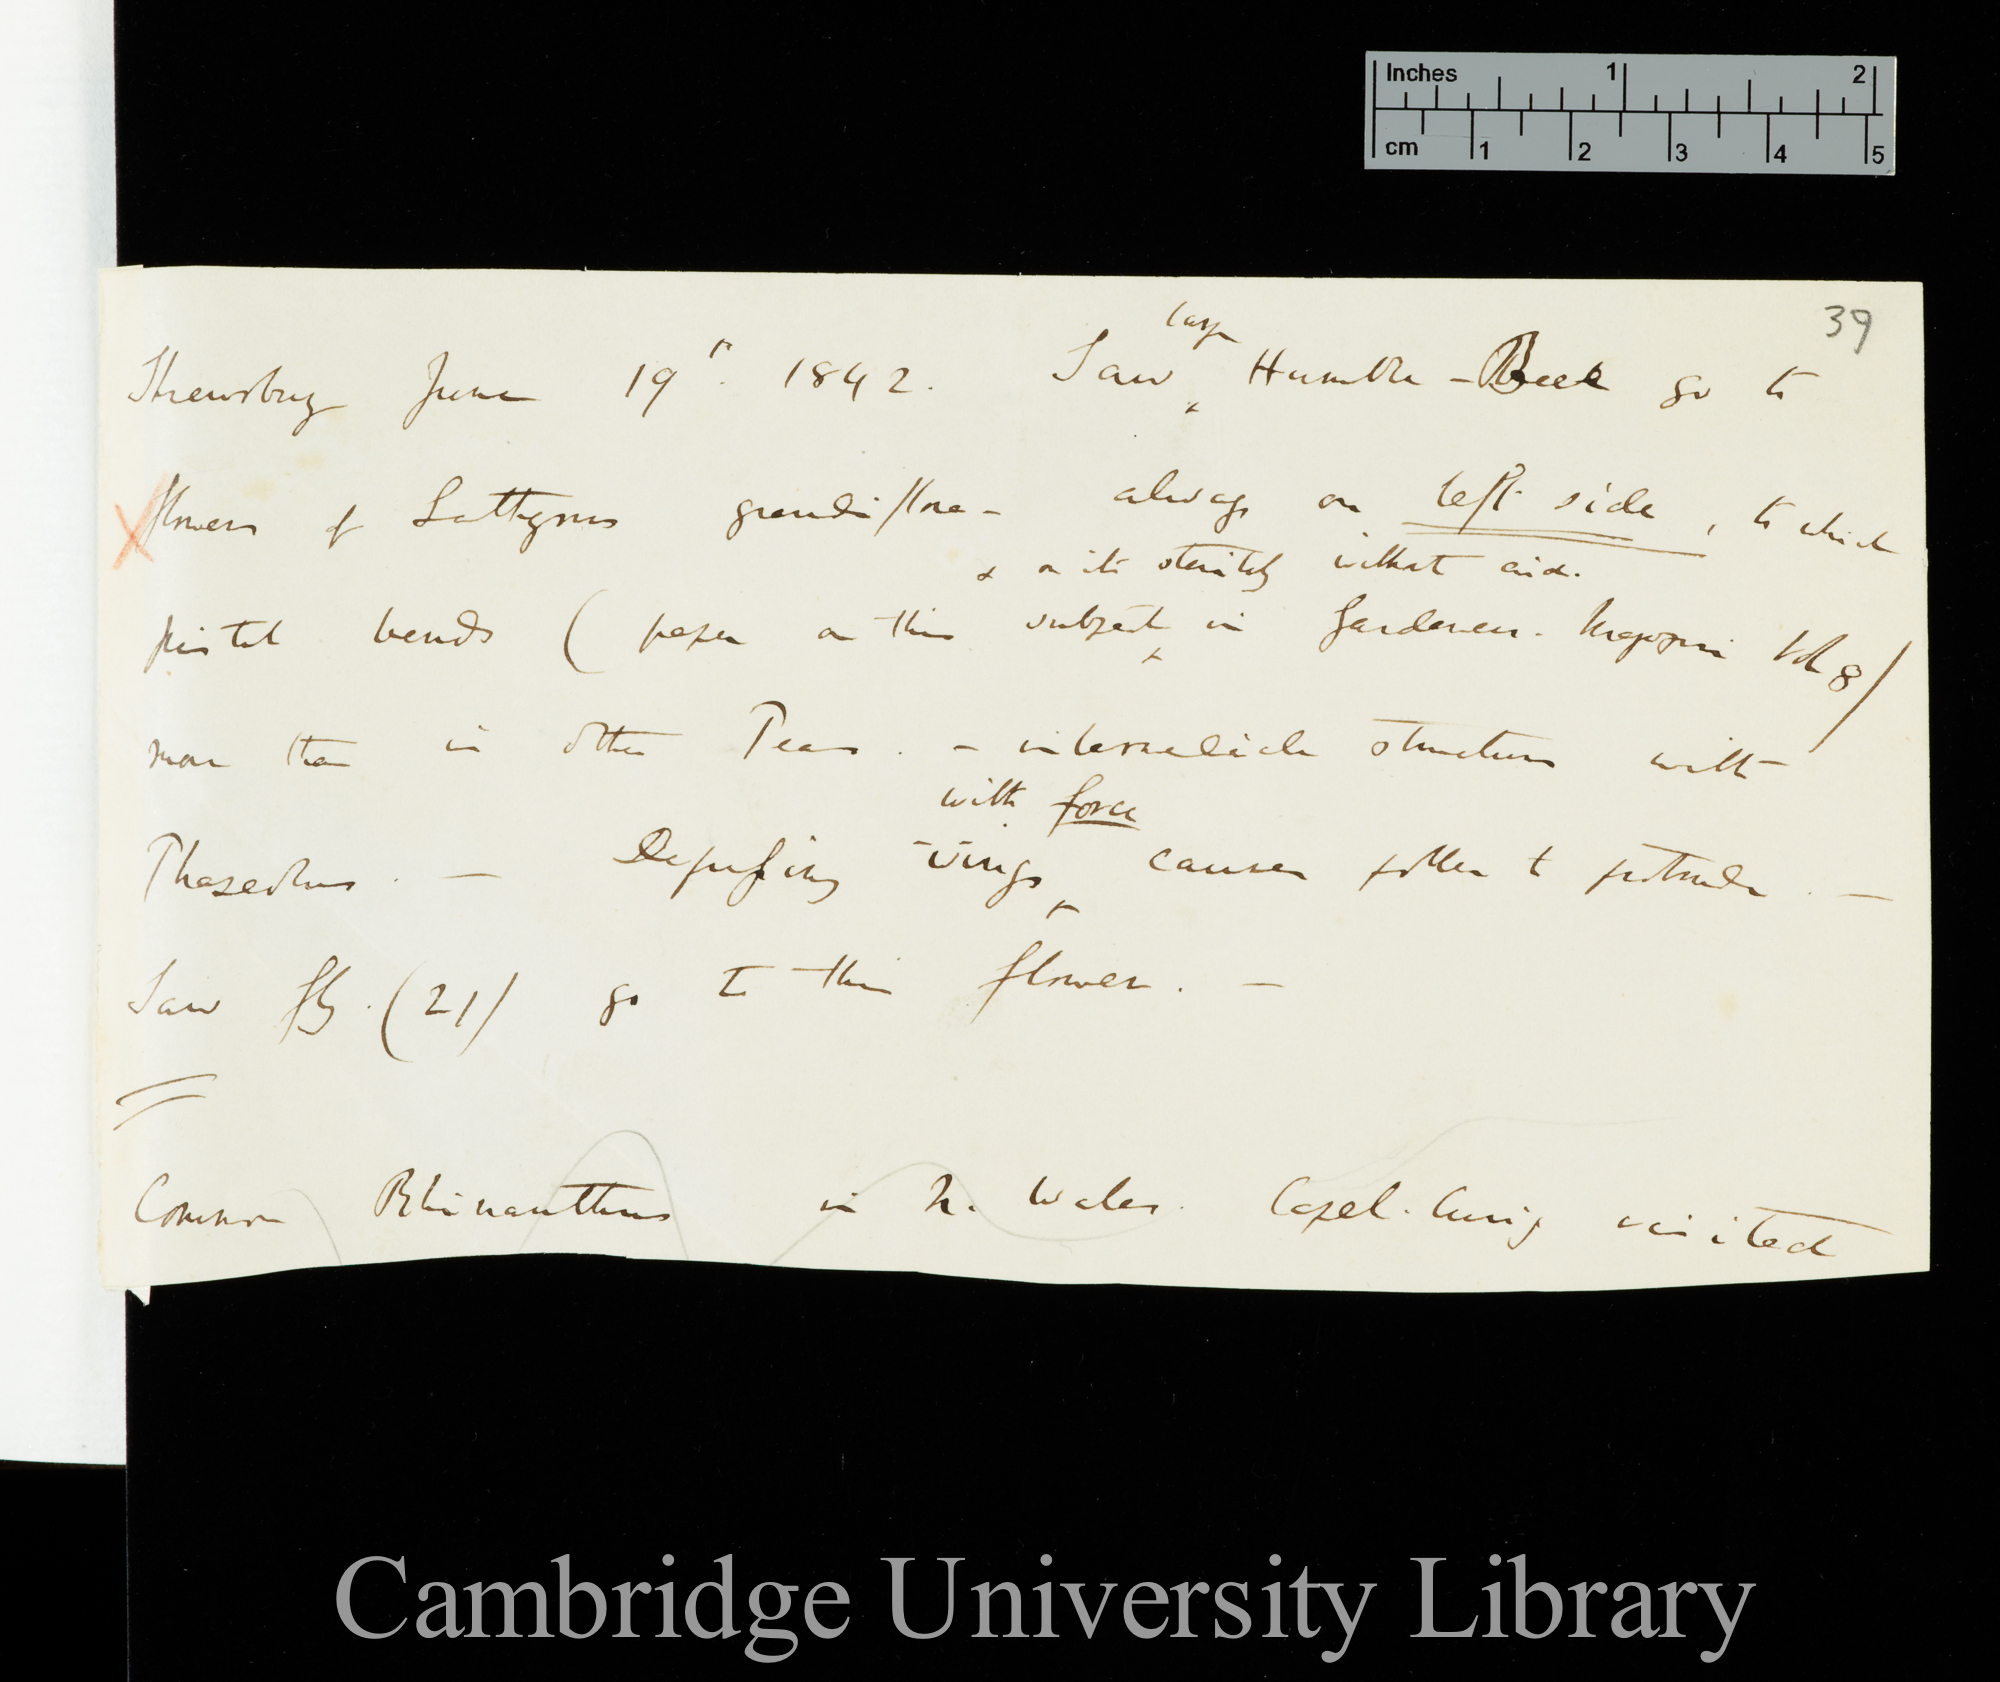 Inches 1 2
cm 1 2 3 4 5
39
large
Shrewsbury June 19th. 1842. Saw Humble-Bee go to
flowers of Lathyrus grandiflora - always on left side, to which
& on its sterility without aid.
pistil bends (paper on this subject in Gardeners. Magazine Vol 8)
more than in other Peas. - intermediate structure with
with force
Phaseolus. — Depressing wings causes pollen to protrude. —
Saw fly. (21) go to this flower. —
Common Rhinanthus in N. Wales. Capel. Curig visited
Cambridge University Library